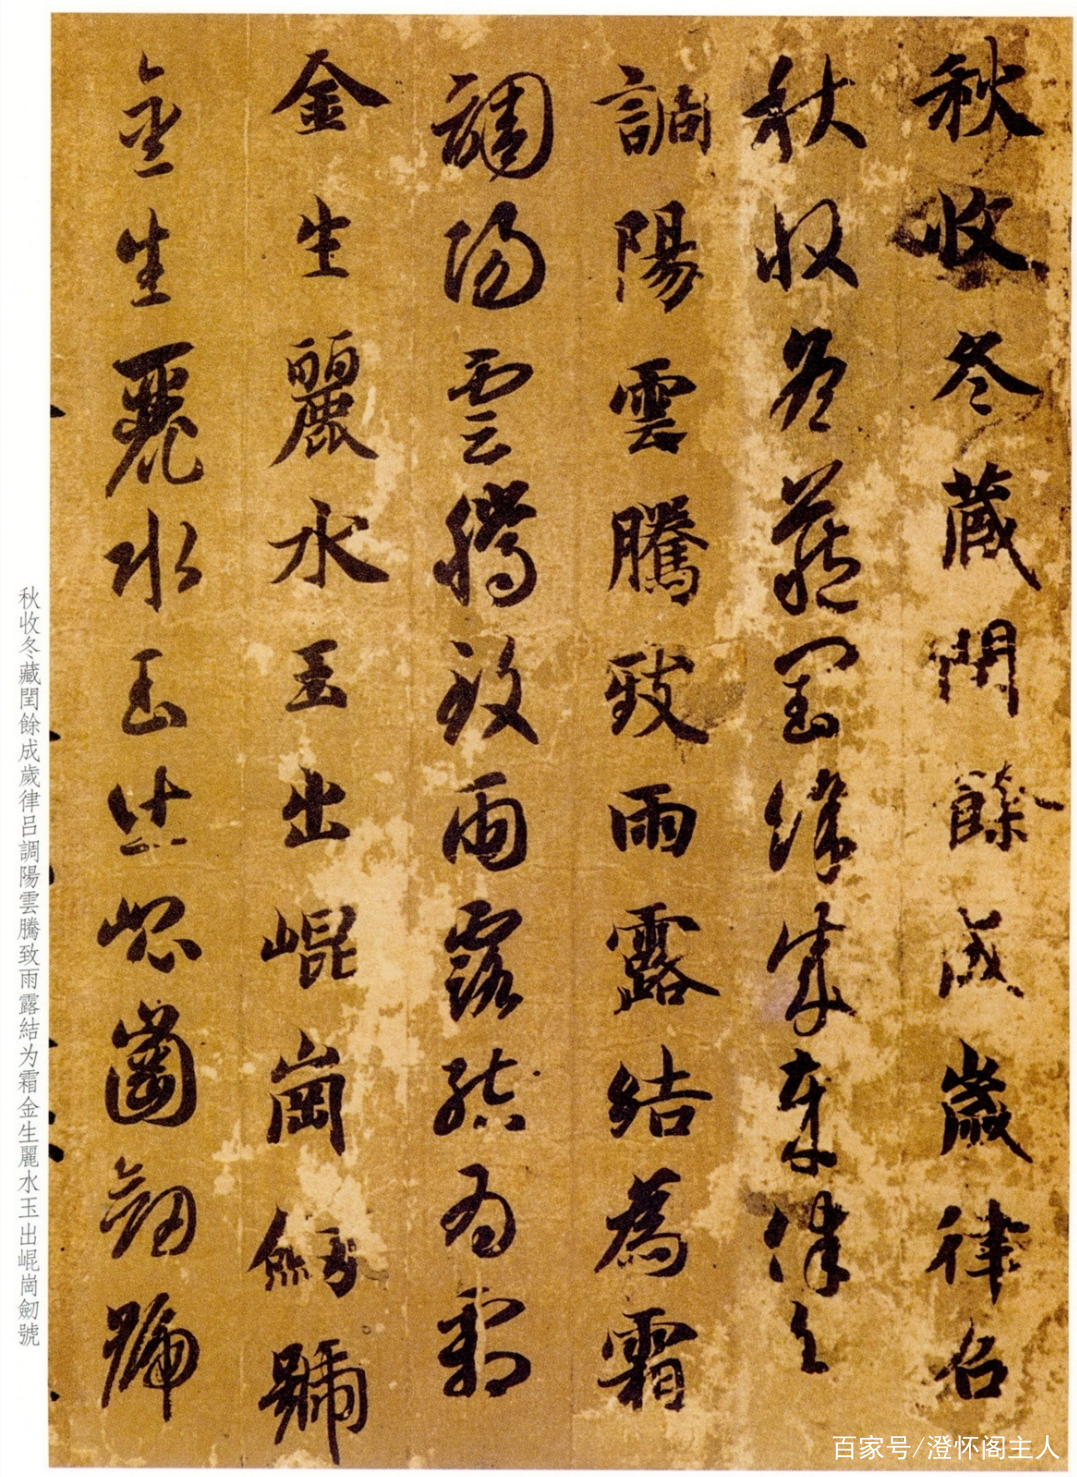 秋收冬藏閏餘成歲律呂
秋收冬藏閏餘成歲律呂
調陽雲騰致雨露結為霜
調陽雲騰致雨露結為霜
金生麗水玉出崐崗劒號
金生麗水玉出崐崗劒號
秋收冬藏閏餘成歲律吕調陽雲騰致雨露結为霜金生麗水玉出崐崗劒號
百家号/澄怀阁主人